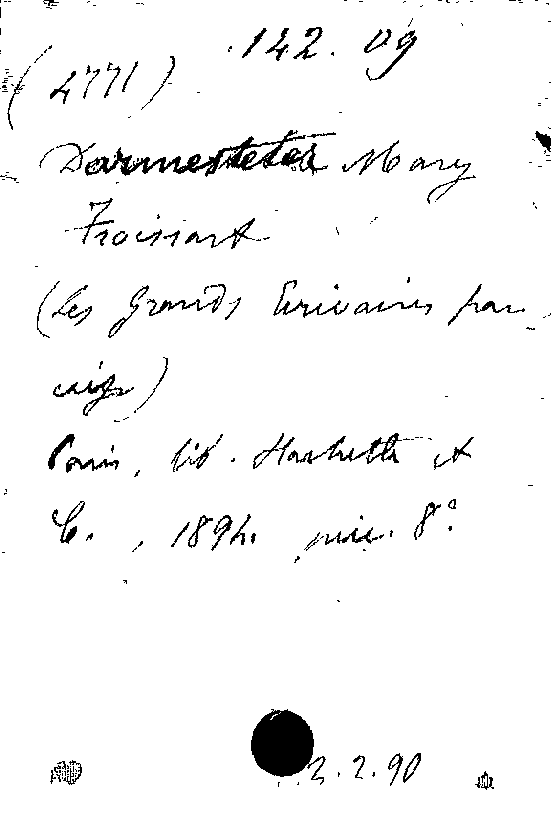 142.09
(4771)
Darmesteter Mary
Froissart
(Les Grands Ecrivains fran-
cais)
Paris, lib. Hachette et
C., 1894. picc. 8°
2.2.90